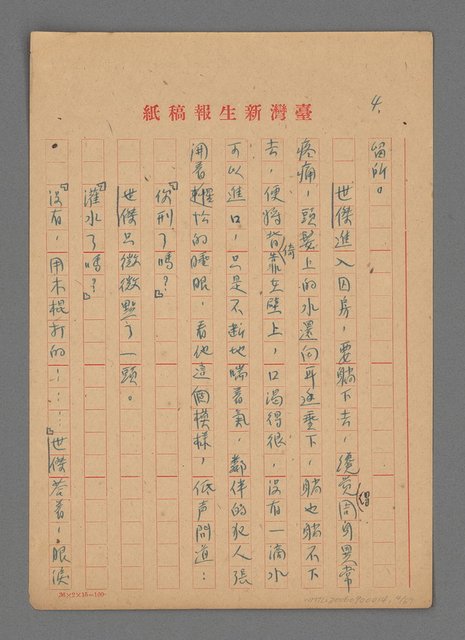 4.
臺灣新生報稿紙
留所。
世傑進入囚房，要躺下去，纔覺得周身異常
疼痛，頭髮上的水還向耳邊垂下，躺也躺不下
去，便將背靠倚在壁上，口渴得很，沒有一滴水
可以進口，只是不斷地喘着氣，鄰伴的犯人張
用着惺忪的睡眼，看他這個模樣，低声問道：
「你刑了嗎？」
世傑只微微點了一頭。
「灌水了嗎？」
「沒有，用木棍打的……」世傑答着，眼淚